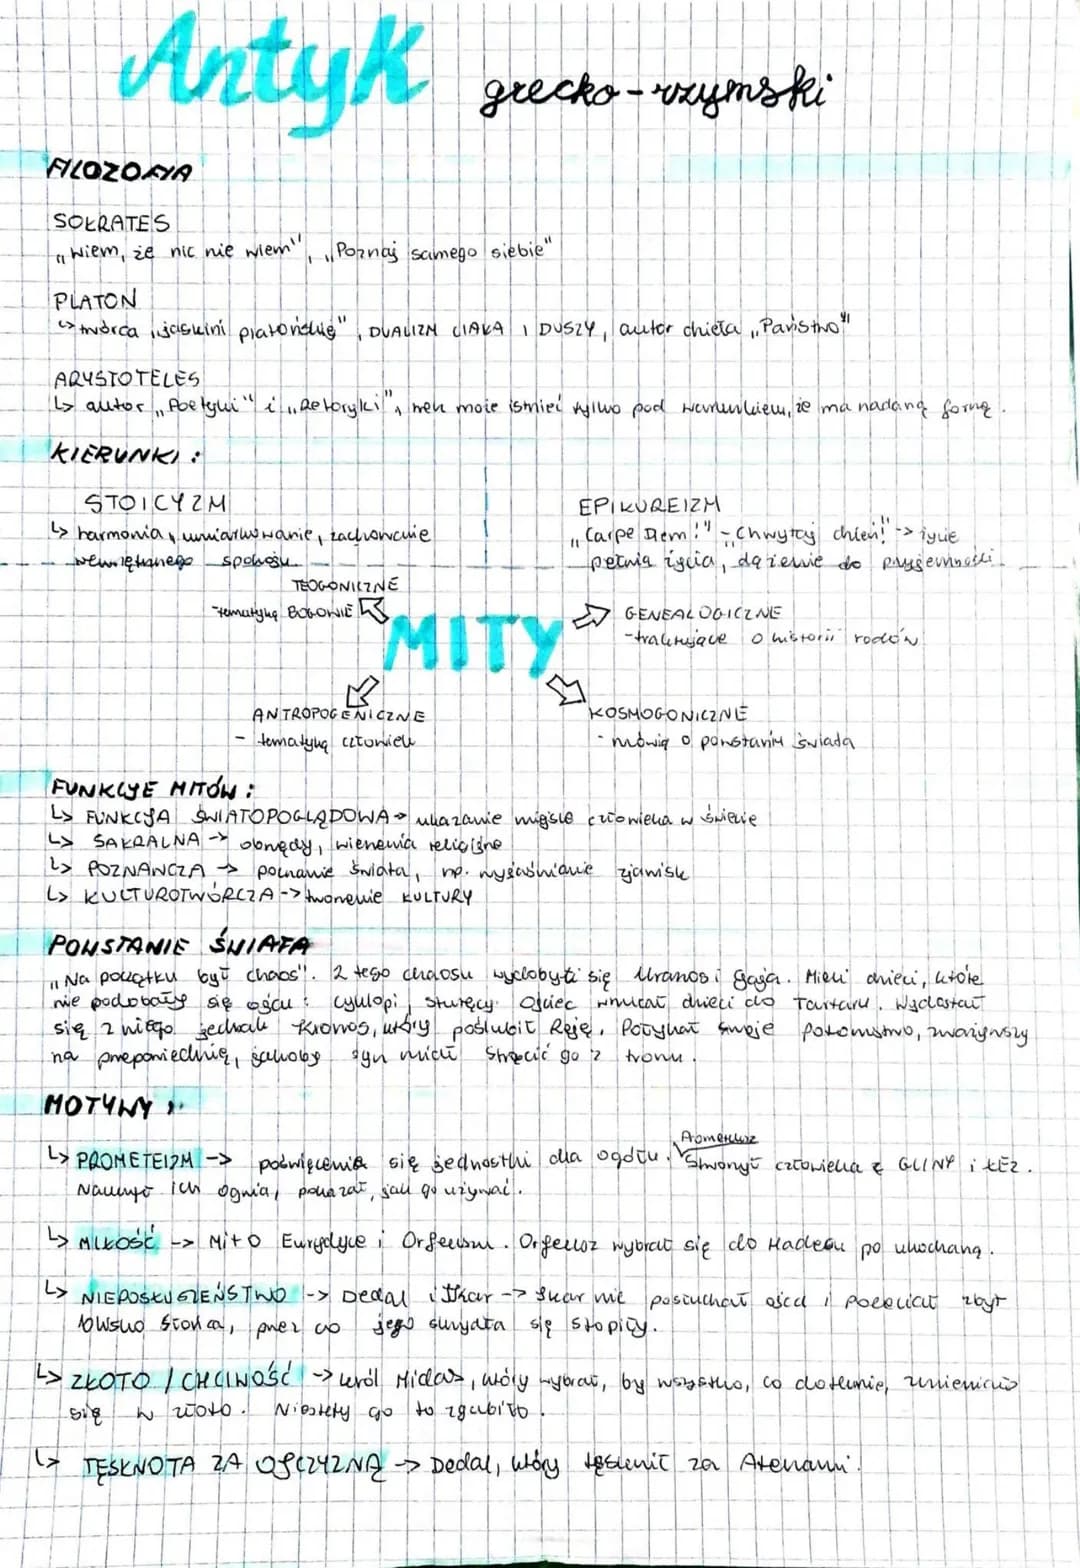 Antyk grecko-rzymski
FILOZOFIA
SOKRATES
"Wiem, że nic nie wiem", "Poznaj samego siebie"
PLATON
↳ twórca "jaskini platońskiej", DUALIZM CIAŁA I DUSZY, autor dzieła "Państwo"
ARYSTOTELES
↳ autor "Poetyki" i "Retoryki", może istnieć tylko pod warunkiem, że ma nadaną formę.
KIERUNKI:
STOICYZM
↳ harmonia, umiarkowanie, zachowanie
wewnętrznego spokoju
EPIKUREIZM
"Carpe Diem!" - "Chwytaj dzień!" -> życie
pełnią życia, dążenie do przyjemności
TEOGONICZNE
-tematyka BOGOWIE
MITY
GENEALOGICZNE
-traktujące o historii rodów
ANTROPOGENICZNE
- tematyka człowiek
KOSMOGONICZNE
- mówią o powstaniu świata
FUNKCJE MITÓW:
↳ FUNKCJA ŚWIATOPOGLĄDOWA -> ukazanie miejsce człowieka w świecie
↳ SAKRALNA -> obrzędy, wierzenia religijne
↳ POZNAWCZA -> poznanie świata, np. wyjaśnianie zjawisk
↳ KULTUROTWÓRCZA -> tworzenie KULTURY
POWSTANIE ŚWIATA
"Na początku był chaos". Z tego chaosu wydobyli się Uranos i Gaja. Mieli dzieci, które
nie podobały się ojcu: cyklopi, sturęcy. Ojciec wrzucał dzieci do Tartaru. Wydostał
się z niego jednak Kronos, który poślubił Reję. Połykał swoje potomstwo, zważywszy
na przepowiednię, jakoby syn miał strącić go z tronu.
MOTYWY:
↳ PROMETEIZM -> poświęcenia się jednostki dla ogółu. Prometeusz Stworzył człowieka z GLINY i ŁEZ.
Nauczył ich ognia, pokazał, jak go używać.
↳ MIŁOŚĆ -> Mit o Eurydyce i Orfeuszu. Orfeusz wybrał się do Hadesu po ukochaną.
↳ NIEPOSŁUSZEŃSTWO -> Dedal i Ikar -> Ikar nie posłuchał ojca i poleciał zbyt
blisko słońca, przez co jego skrzydła się stopiły.
↳ ZŁOTO / CHCIWOŚĆ -> król Midas, który wybrał, by wszystko, co dotknie, zmieniało
się w złoto. Niestety go to zgubiło.
↳ TĘSKNOTA ZA OJCZYZNĄ -> Dedal, który tęsknił za Atenami.